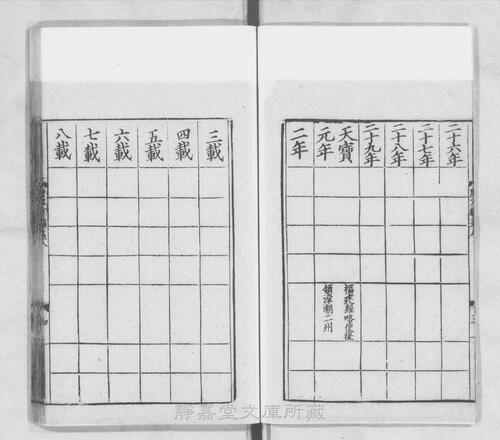 二十六年
二十七年
二十八年
二十九年
天寶
元年
二年
福建經略使復
領漳潮二州
三載
四載
五載
六載
七載
八載
靜嘉堂文庫所藏